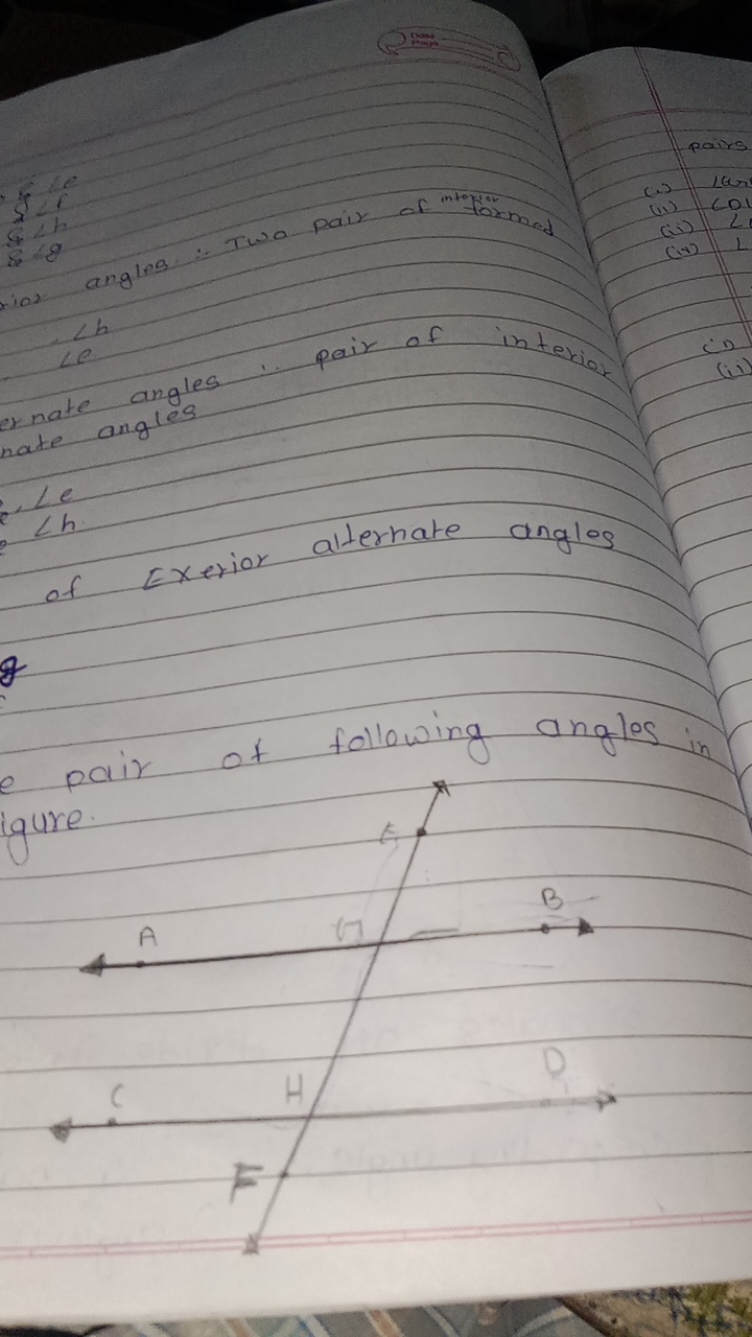 & ∠e
& ∠f
& ∠h
& ∠g
rior angles ∴ Two pair of interior formed
∠h
∠e
ernate angles ∴ pair of interior
nate angles
∠e
∠h
of Exerior alternate angles
g
e pair of following angles in
igure.
E
A
G
B
C
H
D
F
pairs
(i)
(ii)
(iii)
(iv)
(ii)